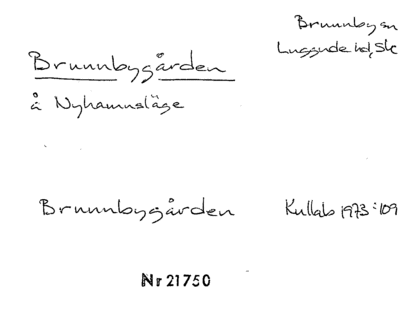 Brunnby sn
Luggude hd, Sk
Brunnbygården
å Nyhamnsläge
Brunnbygården Kullab 1973:109
Nr 21750